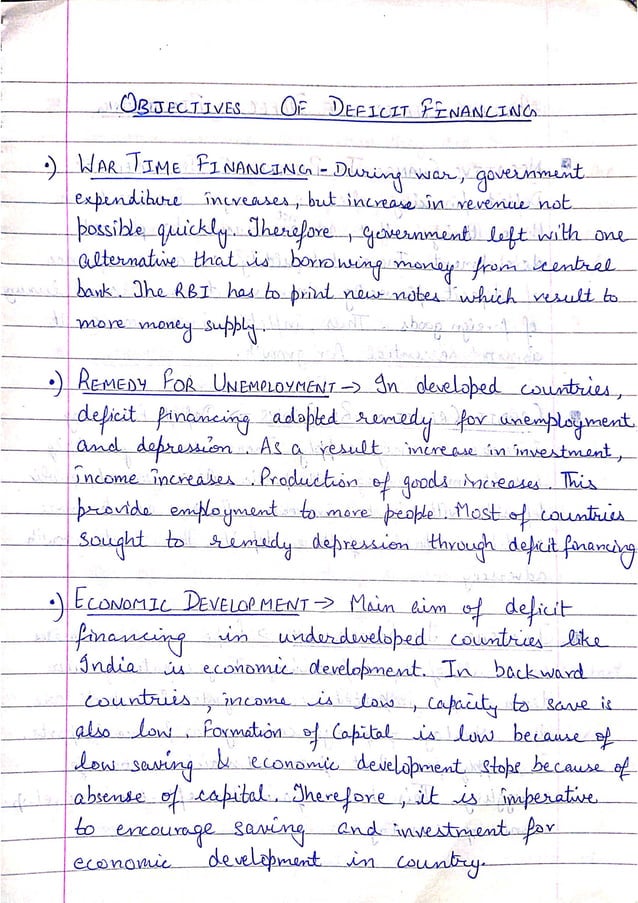 OBJECTIVES OF DEFICIT FINANCING
•) WAR TIME FINANCING - During war, government
expenditure increases, but increase in revenue not
possible quickly. Therefore, government left with one
alternative that is borrowing money from central
bank. The RBI has to print new notes which result to
more money supply.
•) REMEDY FOR UNEMPLOYMENT → In developed countries,
deficit financing adopted remedy for unemployment
and depression. As a result increase in investment,
income increases. Production of goods increases. This
provide employment to more people. Most of countries
sought to remedy depression through deficit financing
•) ECONOMIC DEVELOPMENT → Main aim of deficit
financing in underdeveloped countries like
India is economic development. In backward
countries, income is low, capacity to save is
also low. Formation of Capital is low because of
low saving & economic development stops because of
absense of capital. Therefore, it is imperative
to encourage saving and investment for
economic development in country.